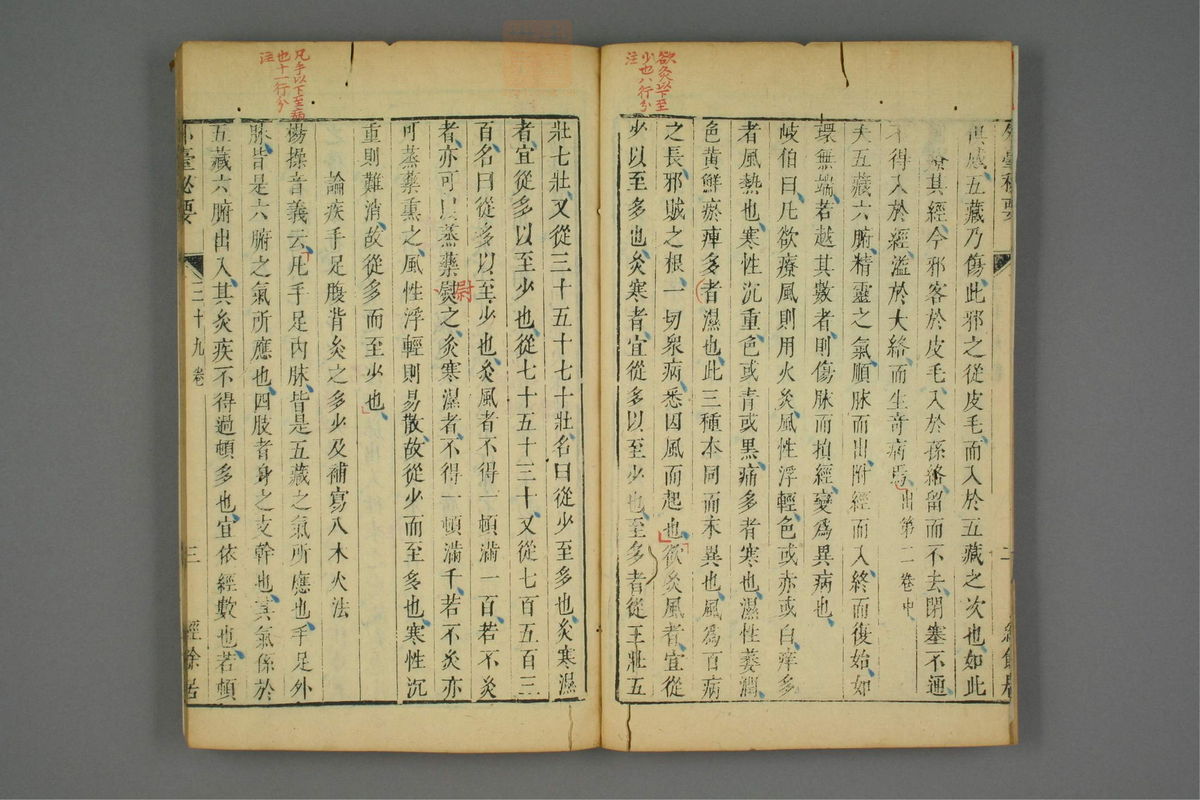 欲灸以下至
少也八行分
注
俱感五藏乃傷此邪之從皮毛而入於五藏之次也如此
其經今邪客於皮毛入於孫絡留而不去閉塞不通
不得入於經溢於大絡而生奇病焉出第二卷中
夫五藏六腑精靈之氣順脉而出附經而入終而復始如
環無端若越其數者則傷脉而損經變爲異病也
岐伯曰凡欲療風則用火灸風性浮輕色或赤或白痒多
者風熱也寒性沉重色或青或黑痛多者寒也濕性萎潤
色黄鮮瘀痺多者濕也此三種本同而末異也風爲百病
之長邪賊之根一切衆病悉因風而起也欲灸風者宜從
少以至多也灸寒者宜從多以至少也至多者從三壯五
壯七壯又從三十五十七十壯名曰從少至多也灸寒濕
者宜從多以至少也從七十五十三十又從七百五百三
百名曰從多以至少也灸風者不得一頓滿一百若不灸
者亦可以蒸藥熨之灸寒濕者不得一頓滿千若不灸亦
尉
可蒸藥熏之風性浮輕則易散故從少而至多也寒性沉
重則難消故從多而至少也
論疾手足腹背灸之多少及補寫八木火法
楊操音義云凡手足内脉皆是五藏之氣所應也手足外
脉皆是六腑之氣所應也四肢者身之支幹也其氣係於
五藏六腑出入其灸疾不得過頓多也宜依經數也若頓
外臺秘要
三十九卷
三
經餘居
凡手以下至病
也十一行分
注